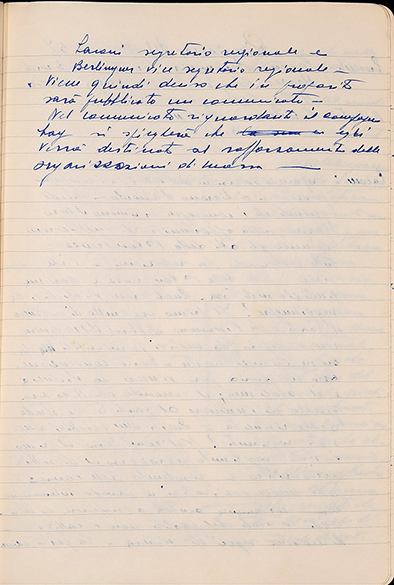 Laconi segretario regionale e
Berlinguer vice segretario regionale —
Viene quindi deciso che in proposito
sarà pubblicato un comunicato —
Nel comunicato riguardante il compagno
Lay si spiegherà che egli
verrà destinato al rafforzamento delle
organizzazioni di massa —